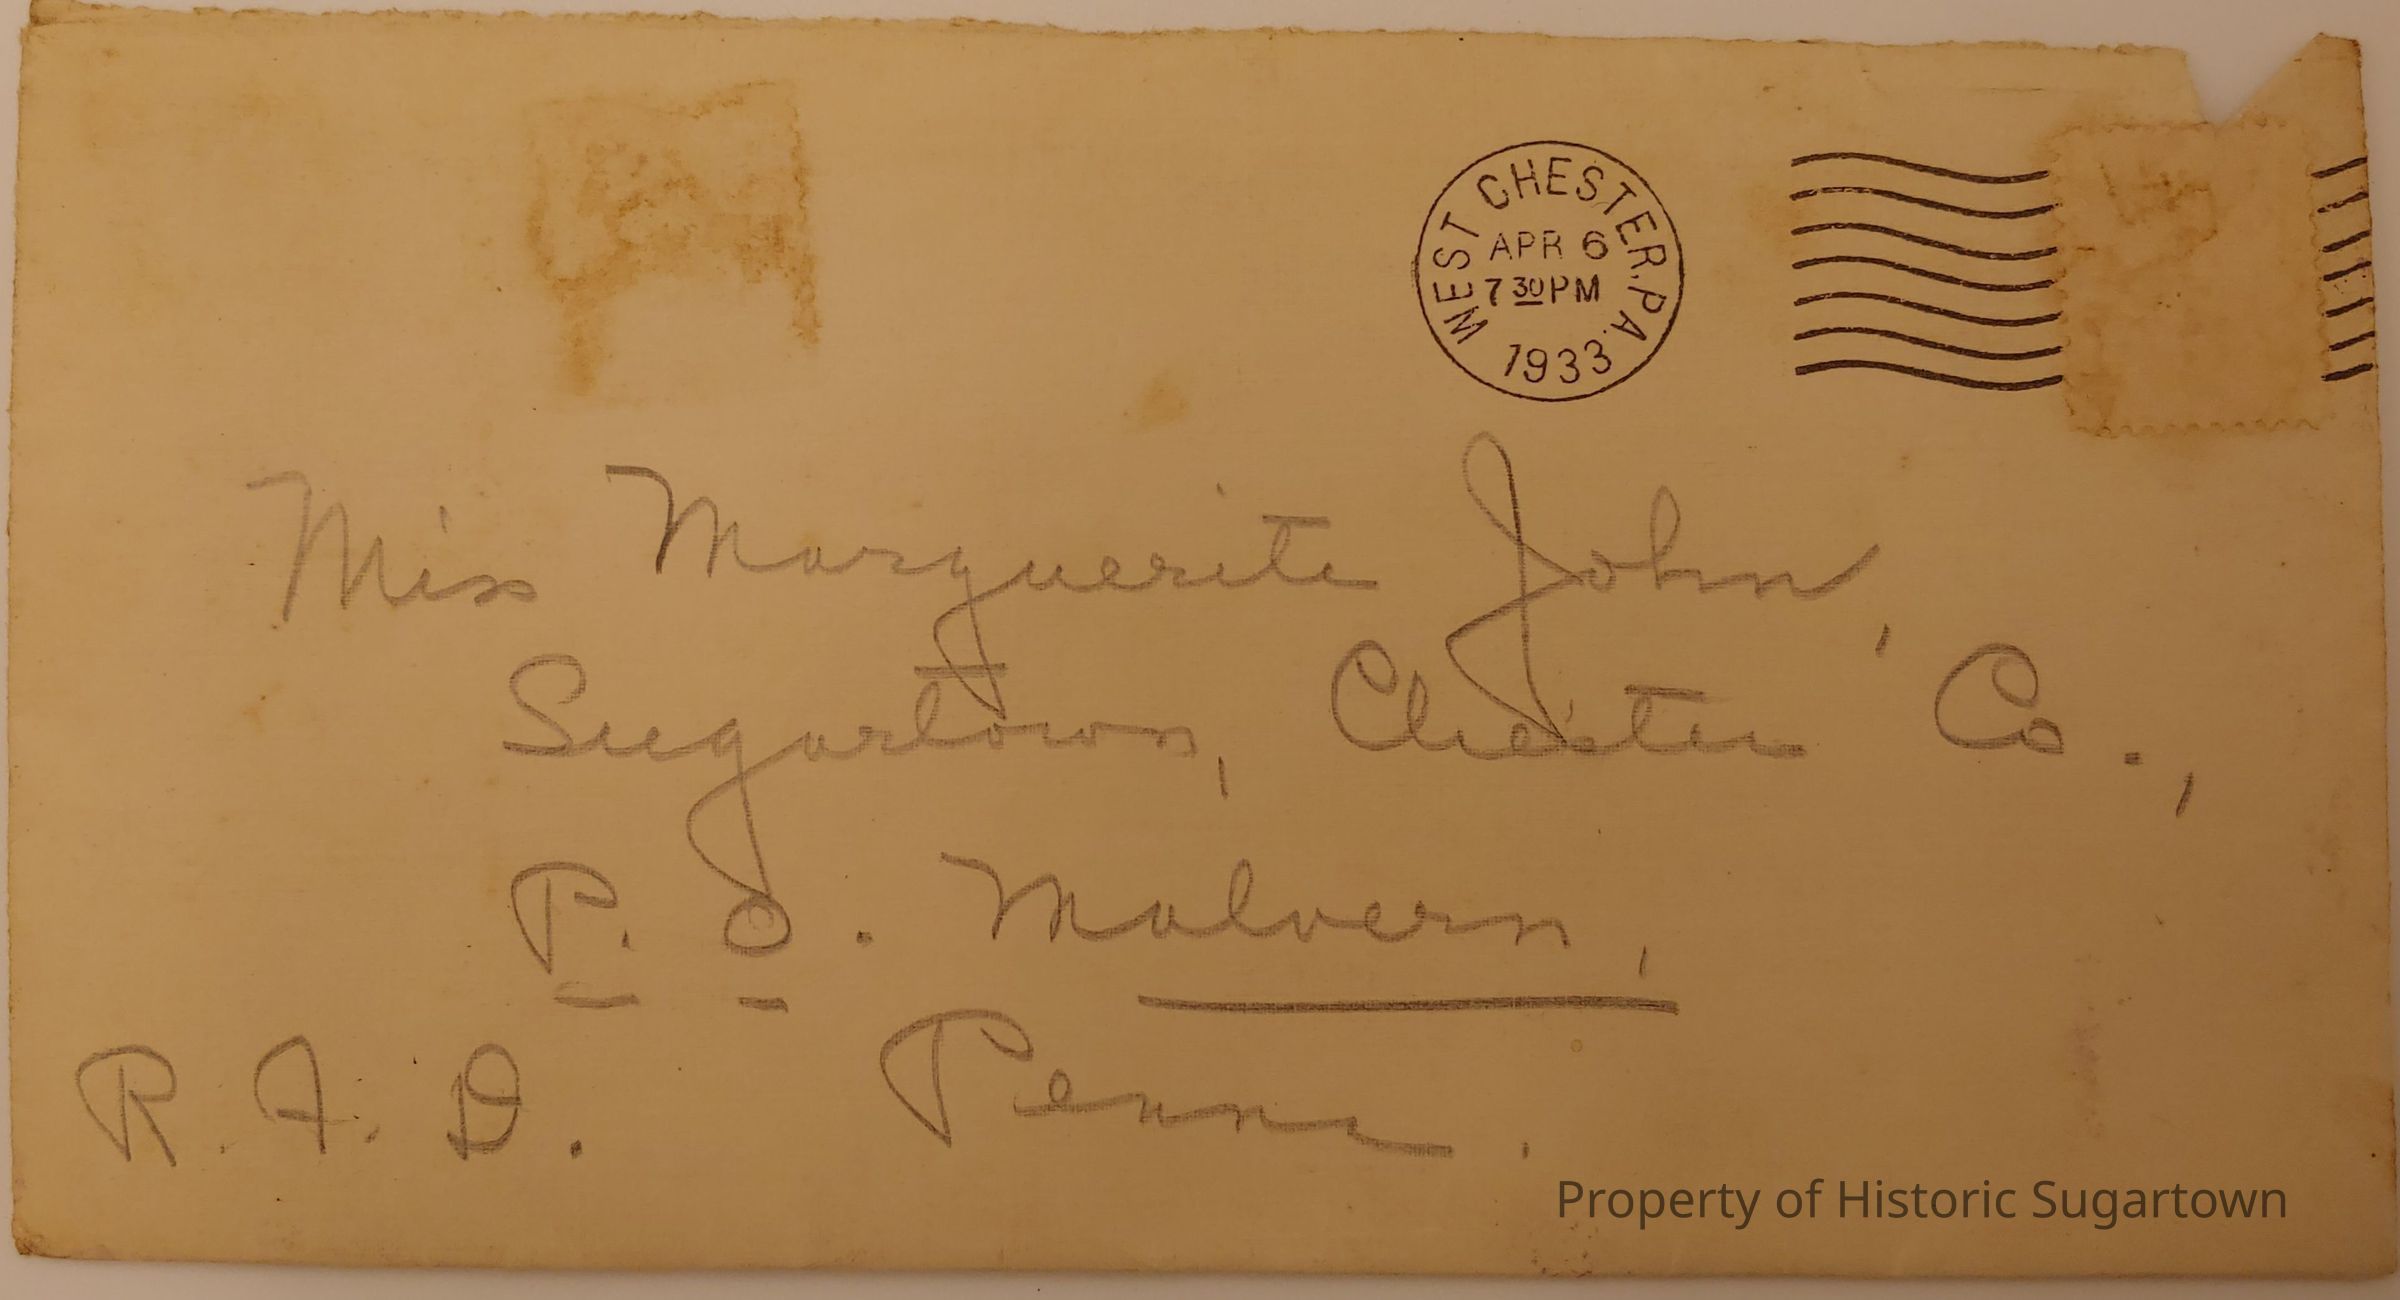 WEST CHESTER, PA.
APR 6
7 30 PM
1933
Miss Marguerite John,
Sugartown, Chester Co.,
P. O. Malvern,
R. F. D. Penna.
Property of Historic Sugartown